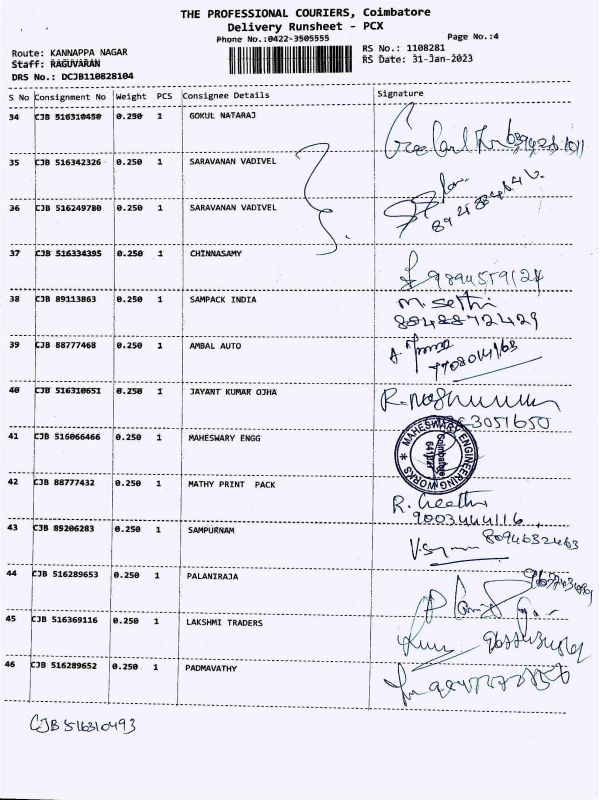 THE PROFESSIONAL COURIERS, Coimbatore
Delivery Runsheet - PCX
Phone No.:0422-3505555
Page No.:4
Route: KANNAPPA NAGAR
RS No.: 1108281
Staff: RAGUVARAN
RS Date: 31-Jan-2023
DRS No.: DCJB110828104
S No Consignment No Weight PCS Consignee Details Signature
34 CJB 516310450 0.250 1 GOKUL NATARAJ
35 CJB 516342326 0.250 1 SARAVANAN VADIVEL
36 CJB 516249780 0.250 1 SARAVANAN VADIVEL
37 CJB 516334395 0.250 1 CHINNASAMY
38 CJB 89113863 0.250 1 SAMPACK INDIA
M. Sethi
39 CJB 88777468 0.250 1 AMBAL AUTO
40 CJB 516310651 0.250 1 JAYANT KUMAR OJHA
41 CJB 516066466 0.250 1 MAHESWARY ENGG
MAHESWARY ENGINEERING WORKS
42 CJB 88777432 0.250 1 MATHY PRINT PACK
9003444116
43 CJB 89206283 0.250 1 SAMPURNAM
8094632463
44 CJB 516289653 0.250 1 PALANIRAJA
45 CJB 516369116 0.250 1 LAKSHMI TRADERS
46 CJB 516289652 0.250 1 PADMAVATHY
CJB 516310493